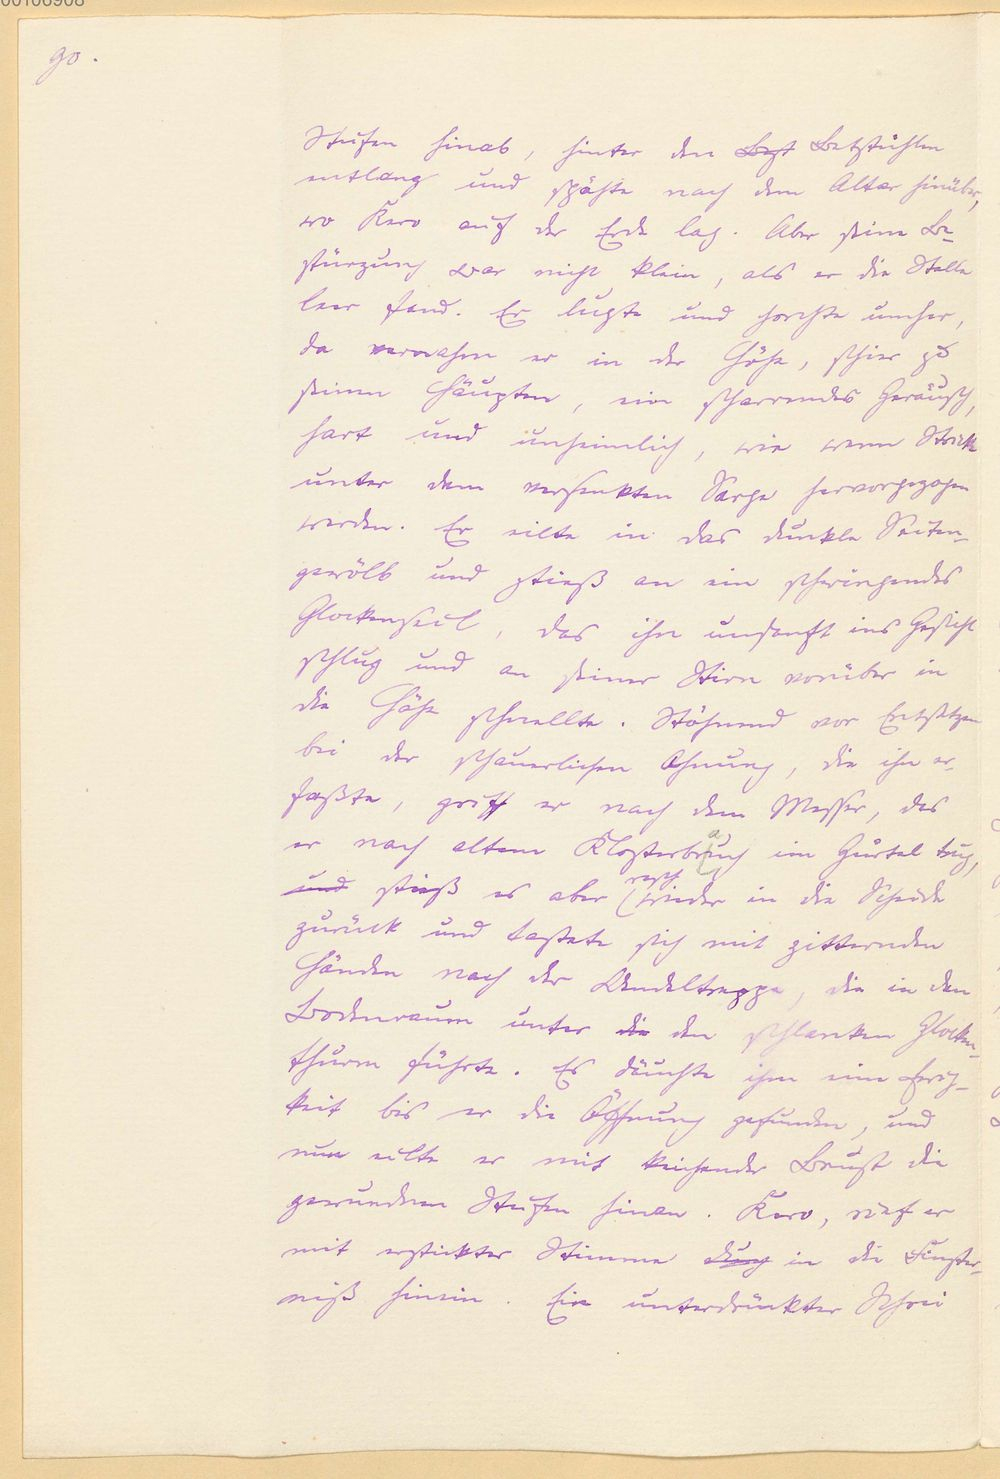 00106908
90.
Stufen hinab, hinter den Best Betstühlen
entlang und spähte nach dem Altar hinüber,
wo Kero auf der Erde lag. Aber seine Be-
stürzung war nicht klein, als er die Stelle
leer fand. Er lugte und horchte umher,
da vernahm er in der Höhe, schier zu
seinen Häupten, ein scharrendes Geräusch,
hart und unheimlich, wie wenn Stricke
unter dem versenkten Sarge hervorgezogen
werden. Er eilte in das dunkle Seiten-
gewölb und stieß an ein schwingendes
Glockenseil, das ihn unsanft ins Gesicht
schlug und an seiner Stirn vorüber in
die Höhe schnellte. Stöhnend vor Entsetzen
bei der schauerlichen Ahnung, die ihn er-
faßte, griff er nach dem Messer, das
er nach altem Klosterbrauch im Gürtel trug,
und stieß es aber rasch wieder in die Scheide
zurück und tastete sich mit zitternden
Händen nach der Wendeltreppe, die in den
Bodenraum unter die den schlanken Glocken-
thurm führte. Es däuchte ihm eine Ewig-
keit bis er die Öffnung gefunden, und
nun eilte er mit keichender Brust die
gewundnen Stufen hinan. Kero, rief er
mit erstickter Stimme durch in die Finster-
niß hinein. Ein unterdrückter Schrei